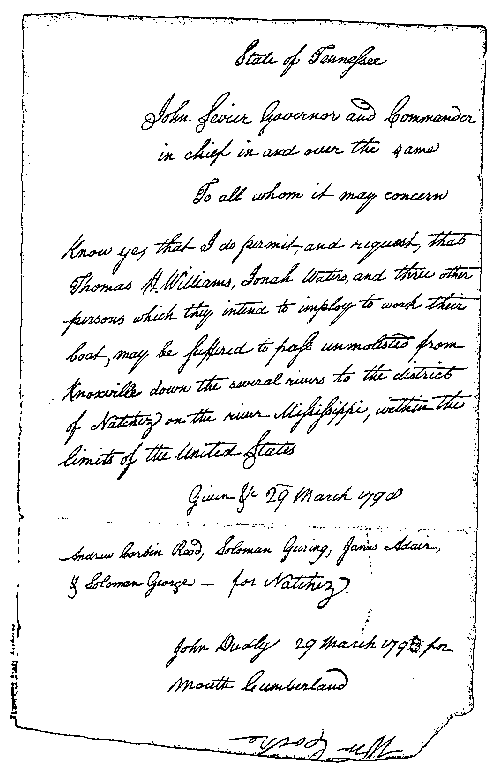 State of Tennessee
John Sevier Governor and Commander
in chief in and over the same
To all whom it may concern
Know ye, that I do permit, and request, that
Thomas H. Williams, Jonah Waters, and three other
persons which they intend to imploy to work their
boat, may be suffered to pass unmolested from
Knoxville down the several rivers to the district
of Natchez on the river Mississippi, within the
limits of the United States
Given &c 29 March 1798
Andrew Corbin Reed, Soloman Guring, James Adair,
& Soloman George — for Natchez
John Dudly 29 March 1798 for
Mouth Cumberland